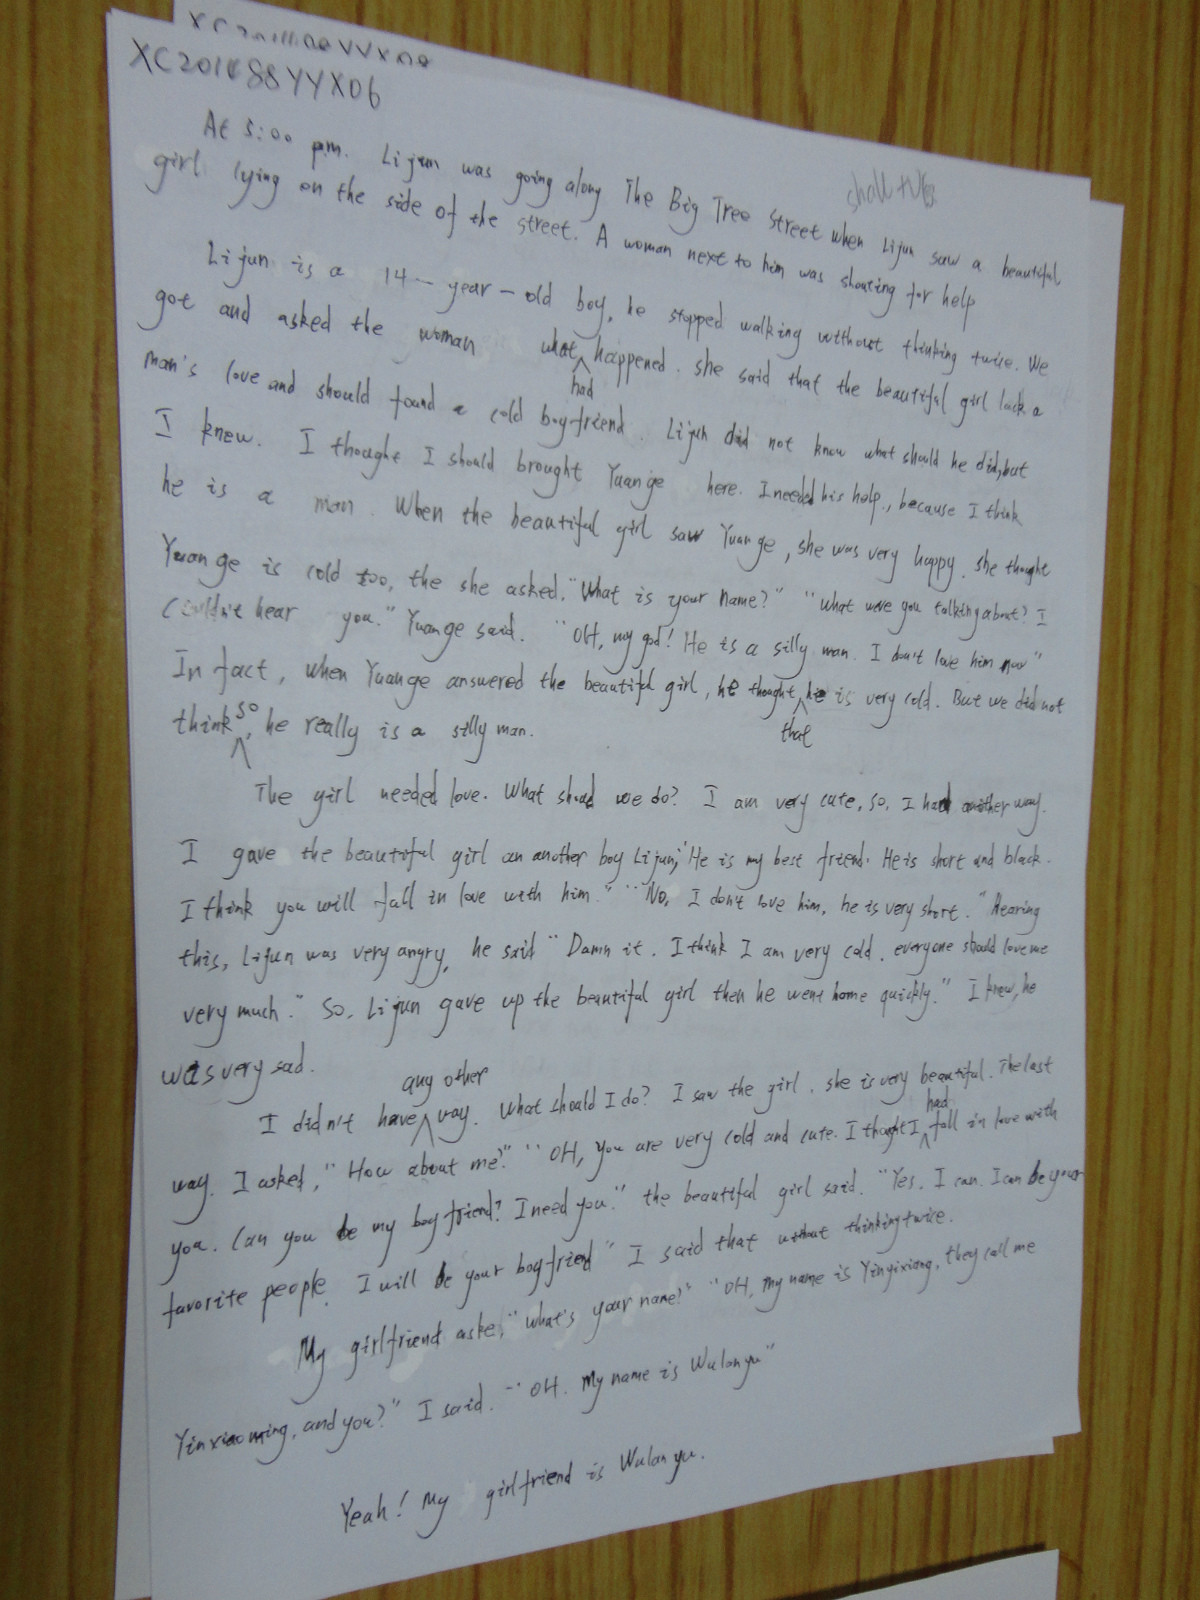 XC201488YYX06
At 5:00 pm. Lijun was going along The Big Tree Street when Lijun saw a beautiful
girl lying on the side of the street. A woman next to him was shouting for help
Lijun is a 14-year-old boy, he stopped walking without thinking twice. We
got and asked the woman what had happened. she said that the beautiful girl lack a
man's love and should found a cold boyfriend. Lijun did not know what should he did, but
I knew. I thought I should brought Yuange here. I needed his help., because I think
he is a man. When the beautiful girl saw Yuange, she was very happy. she thought
Yuange is cold too, the she asked. "What is your name?" "what were you talking about? I
Couldn't hear you." Yuange said. "OH, my god! He is a silly man. I don't love him now"
In fact, when Yuange answered the beautiful girl, he thought that he is very cold. But we did not
think so, he really is a silly man.
The girl needed love. What shoud we do? I am very cute, so, I had another way.
I gave the beautiful girl an another boy Lijun, "He is my best friend. He is short and black.
I think you will fall in love with him." "No, I don't love him, he is very short." Hearing
this, Lijun was very angry, he said "Damn it. I think I am very cold. everyone should love me
very much." So, Lijun gave up the beautiful girl then he went home quickly." I knew, he
was very sad.
I didn't have any other way. What should I do? I saw the girl. she is very beautiful. The last
way. I asked, "How about me?" "OH, you are very cold and cute. I thought I had fall in love with
you. Can you be my boyfriend? I need you." the beautiful girl said. "Yes. I can. I can be your
favorite people. I will be your boyfriend" I said that without thinking twice.
My girlfriend aske, "what's your name?" "OH, my name is Yinyixiang, they call me
Yinxiaoming, and you?" I said. "OH. My name is Wulanyu"
Yeah! My girlfriend is Wulanyu.